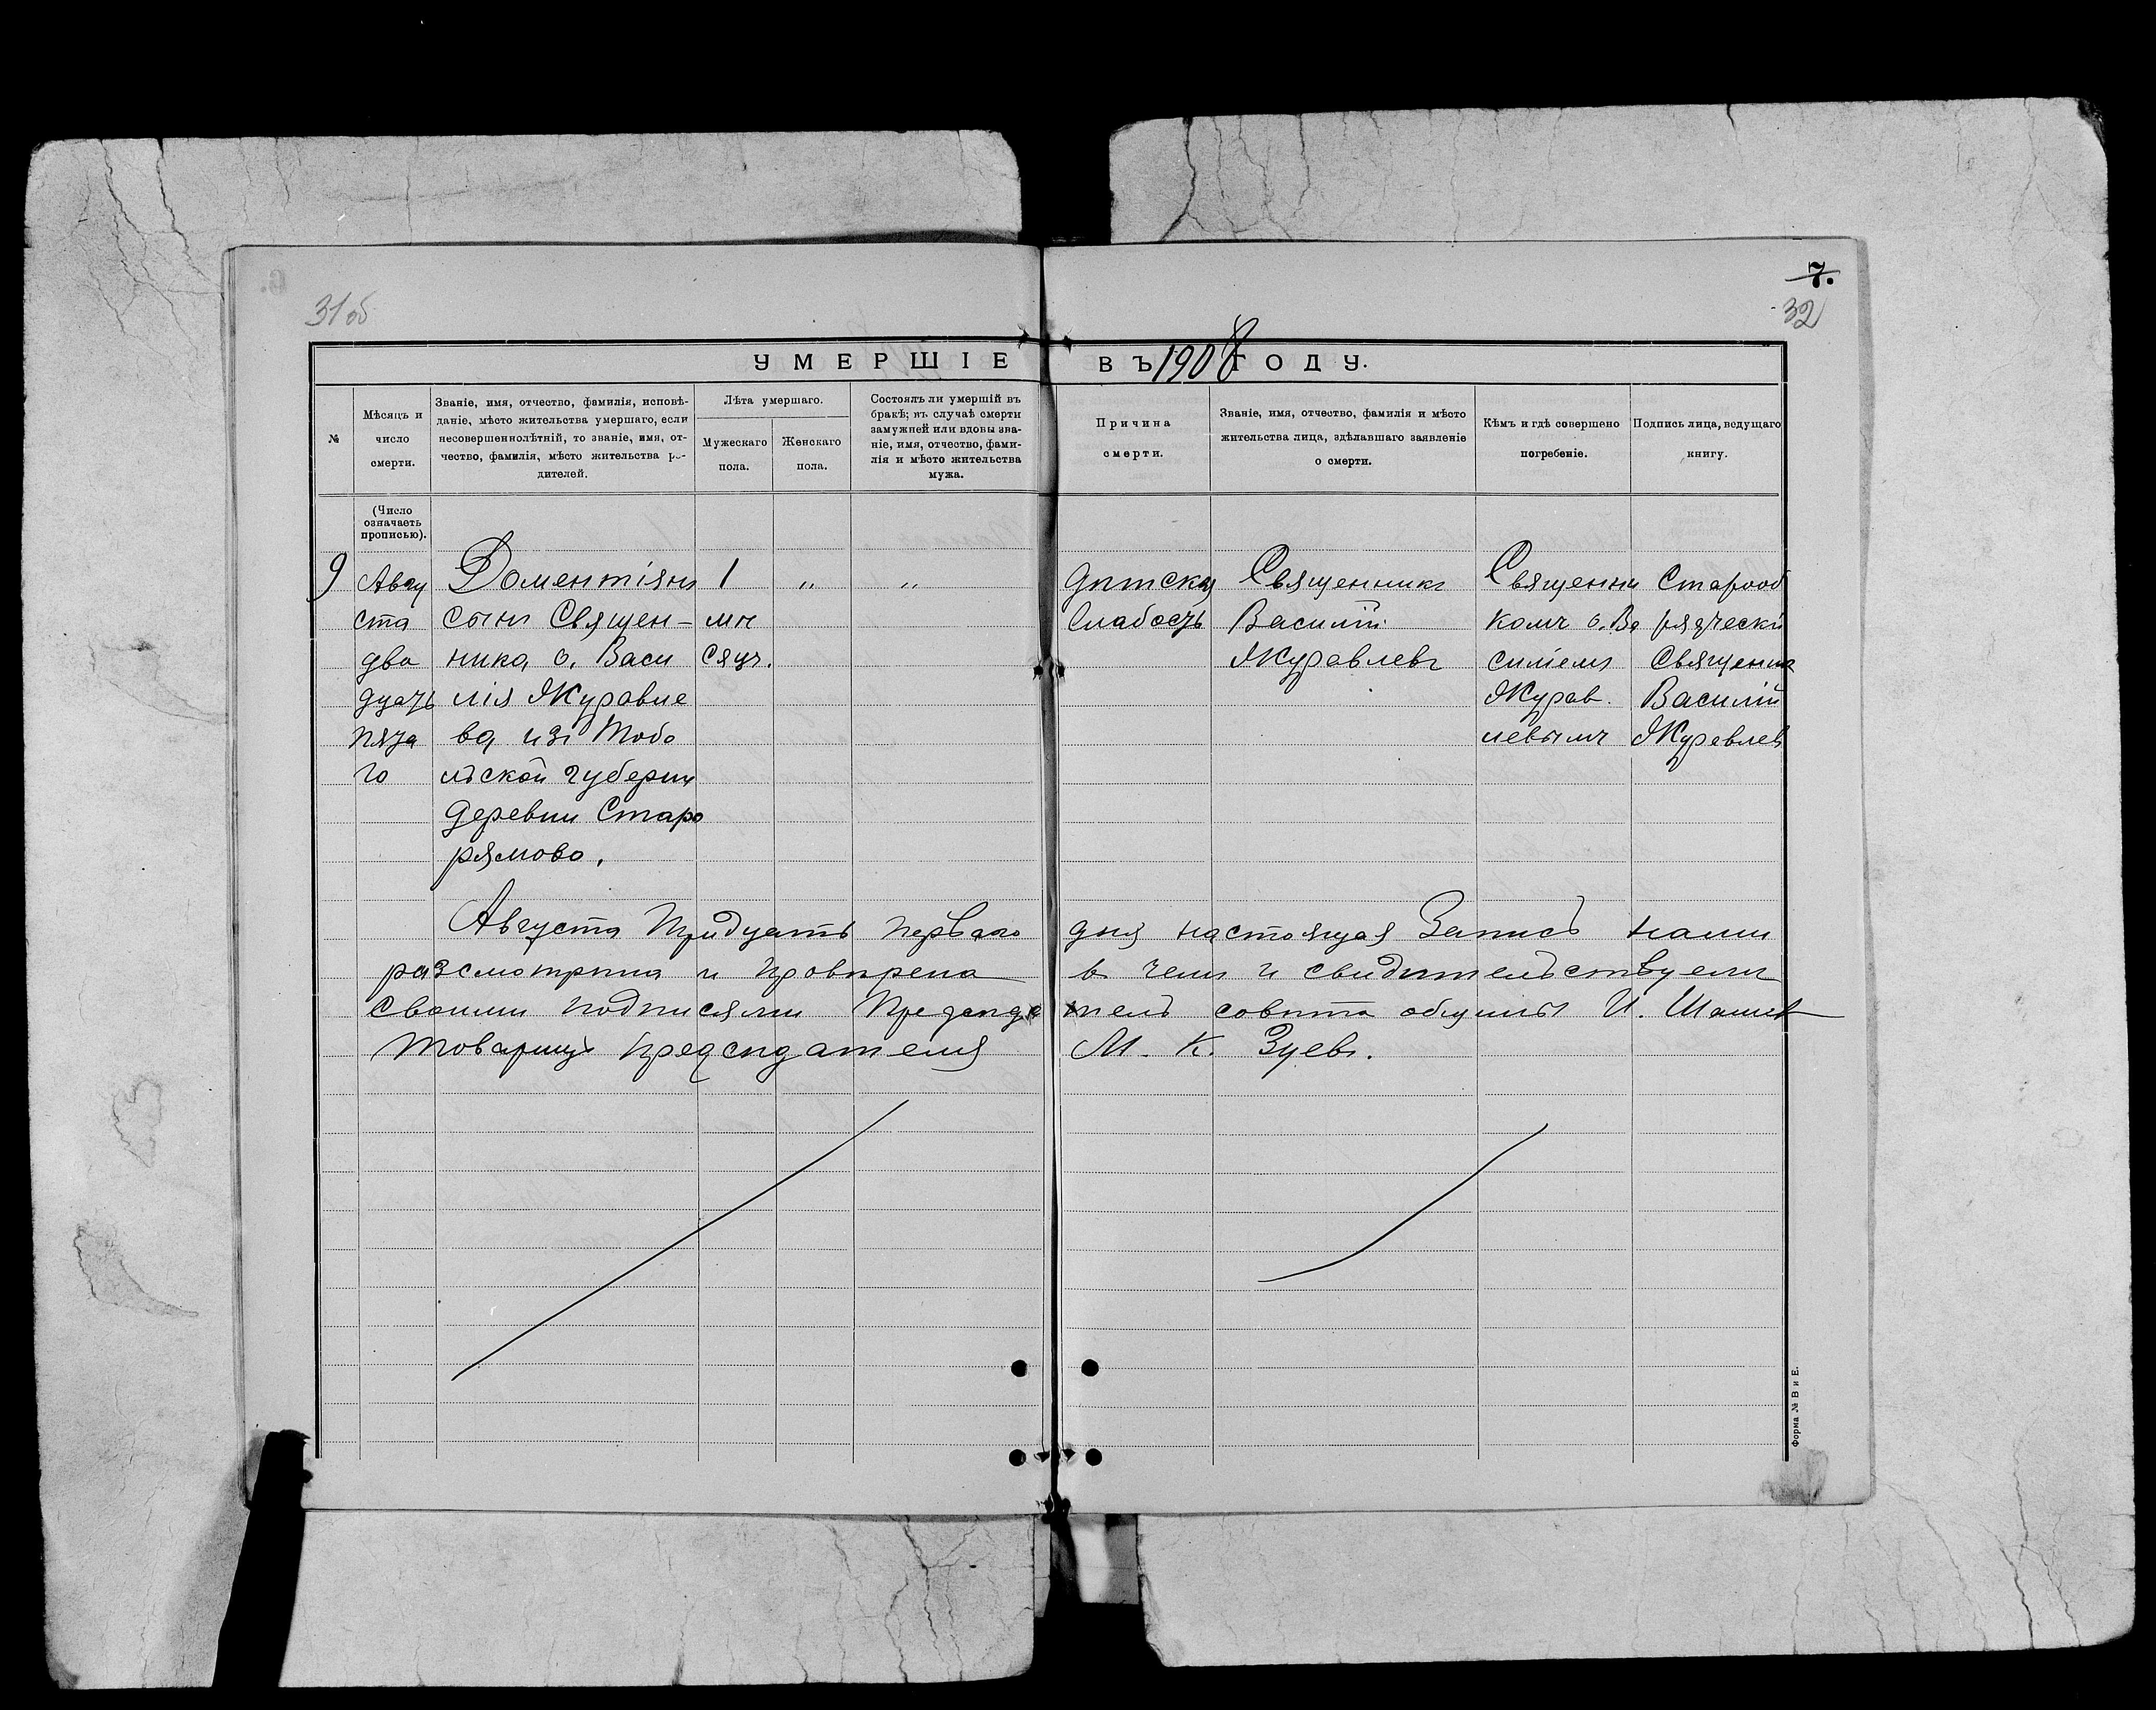 7.
31об
32
УМЕРШІЕ ВЪ 1908 ГОДУ.
№
Мѣсяцъ и
число
смерти.
Званіе, имя, отчество, фамилія, исповѣ-
даніе, мѣсто жительства умершаго, если
несовершеннолѣтній, то званіе, имя, от-
чество, фамилія, мѣсто жительства ро-
дителей.
Лѣта умершаго.
Мужескаго
пола.
Женскаго
пола.
Состоялъ ли умершій въ
бракѣ; въ случаѣ смерти
замужней или вдовы зва-
ніе, имя, отчество, фами-
лія и мѣсто жительства
мужа.
Причина
смерти.
Званіе, имя, отчество, фамилія и мѣсто
жительства лица, здѣлавшаго заявленіе
о смерти.
Кѣмъ и гдѣ совершено
погребеніе.
Подпись лица, ведущаго
книгу.
(Число
означаетъ
прописью).
9
Авгу
ста
два
дцать
пята
го
Доментіянъ
сынъ Священ-
ника о. Васи
лія Журавле
ва изъ Тобо
льской губерніи
деревни Старо
рямово.
1
мѣ
сяцъ.
„
„
дѣтская
слабость
Священникъ
Василій
Журавлевъ
Священни
комъ о. Ва
силіемъ
Журав
левымъ
Старооб
рядчески
Священник
Василій
Журавлев
Августа тридцать перваго дня настоящая Запись нами
разсмотрѣна и провѣрена в чемъ и свидѣтельствуемъ
своими подписями Предсѣда тель совѣта общины И.
товарищъ предсѣдателя М. К. Зуевъ.
Форма № В и Е.